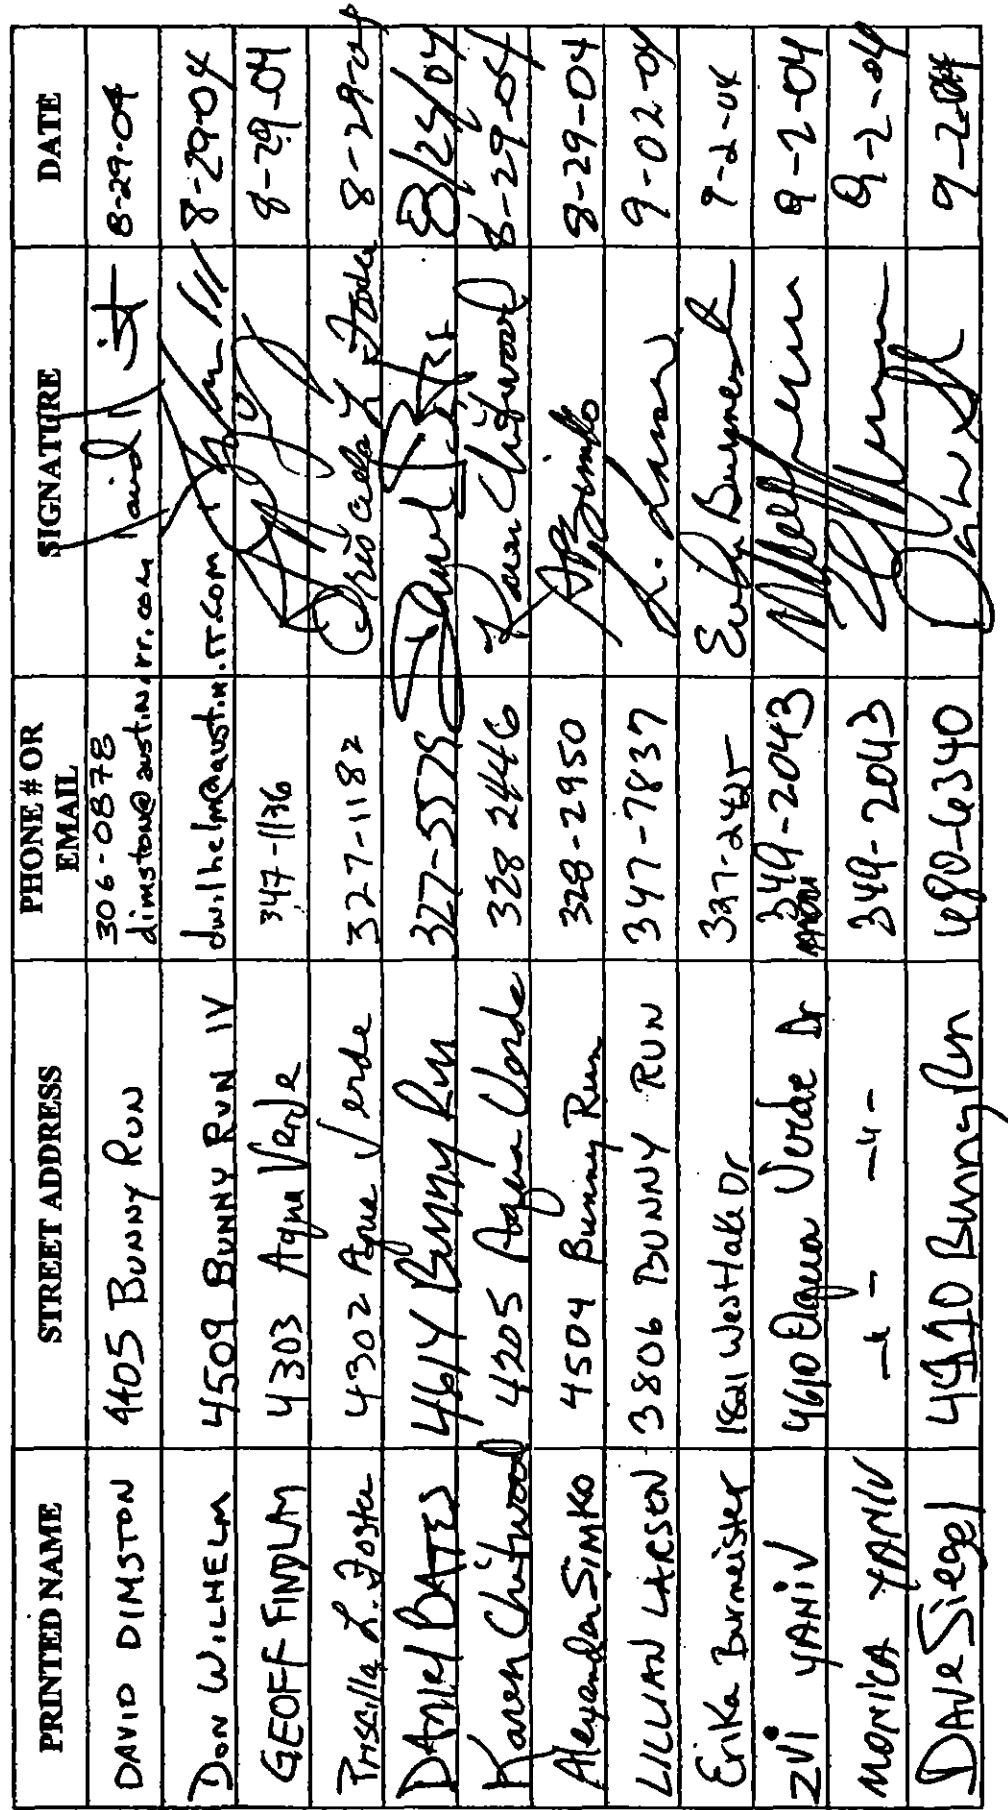 PRINTED NAME STREET ADDRESS PHONE # OR EMAIL SIGNATURE DATE
DAVID DIMSTON 4405 BUNNY RUN 306-0878 dimston@austin.rr.com 8-29-04
DON WILHELM 4509 BUNNY RUN IV dwilhelm@austin.rr.com 8-29-04
GEOFF FINDLAY 4303 Aqua Verde 347-1136 8-29-04
Priscilla L. Foster 4302 Aqua Verde 327-1182 Priscilla L. Foster 8-29-04
DANIEL BATES 4614 Bunny Run 327-5575 Daniel Bates 8/29/04
Karen Chitwood 4205 Aqua Verde 328 2446 Karen Chitwood 8-29-04
Alexandra SIMKO 4504 Bunny Run 328-2950 8-29-04
LILLIAN LARSEN 3806 BUNNY RUN 347-7837 L. Larsen 9-02-04
Erika Burmeister 1821 Westlake Dr 327-2425 Erika Burmeister 9-2-04
ZVI YANIV 4610 Aqua Verde Dr 349-2043 9-2-04
MONICA YANIV -"- -"- 349-2043 9-2-04
DAVE Siegel 4410 Bunny Run 480-6340 9-2-04